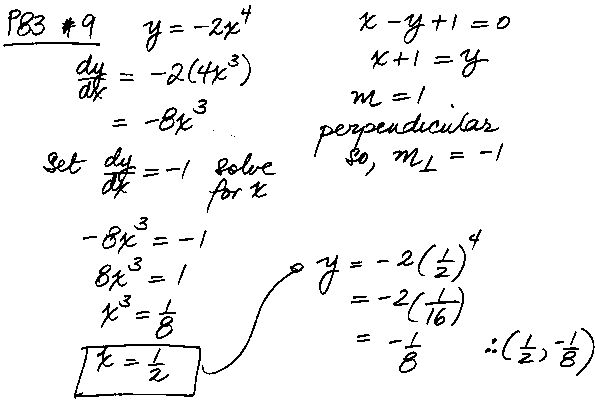 P83 #9
y = -2x⁴
dy/dx = -2(4x³)
= -8x³
Set dy/dx = -1 solve for x
-8x³ = -1
8x³ = 1
x³ = 1/8
x = 1/2
x - y + 1 = 0
x + 1 = y
m = 1
perpendicular
so, m⊥ = -1
y = -2(1/2)⁴
= -2(1/16)
= -1/8 ∴(1/2, -1/8)